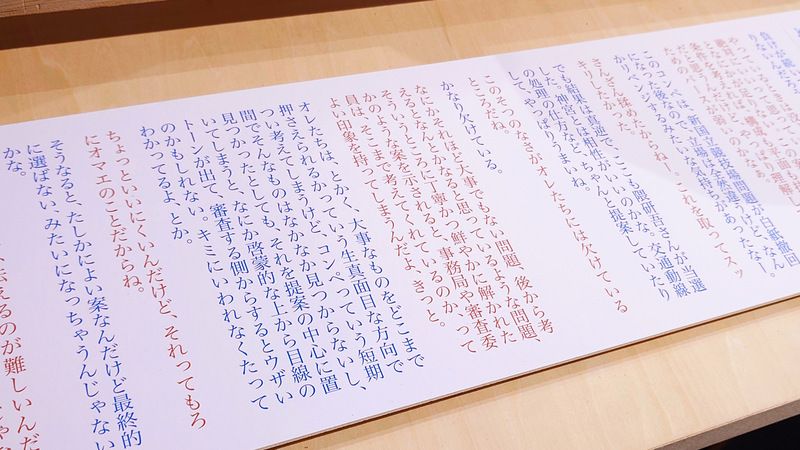 このコンペは、新国立競技場問題が白紙撤回
になった後なので、全然違うんだけど、なん
かリベンジするみたいな気持ちがあったなー。
さんざん揉めたからねー。これを取ってスッ
キリしたかった。
でも結果は真逆で、ここも隈研吾さんが当選
した。神宮とは相性がいいのかな。交通動線
の処理の仕方など、ちゃんと提案していたり
して、やっぱりうまいね。
このそつのなさがオレたちには欠けている
ところだね。
かなり欠けている。
なにかそれほど大事でもない問題、後から考
えるとなんとかなると思っているような問題、
そういうところに丁寧かつ鮮やかに解かれた
かのような案を示してくれると、事務局や審査委
員は、そこまで考えてくれているのか、って
よい印象を持ってしまうんだよ、きっと。
オレたちは、とかく、大事なものをどこまで
押さえられるかっていう生真面目な方向で
つい考えてしまうけど、コンペっていう短期
間でそんなものはなかなか見つからないし、
見つかったとしても、それを提案の中心に置
いてしまうと、なにか啓蒙的な上から目線の
トーンが出て、審査する側からするとウザい
のかもしれない。キミにいわれなくたって
わかってるよ、とか。
ちょっといいにくいんだけど、それってもろ
にオマエのことだからね。
そうなると、たしかによい案なんだけど最終的
に選ばない、みたいになっちゃうんじゃない
かな。
伝えるのが難しいんだ